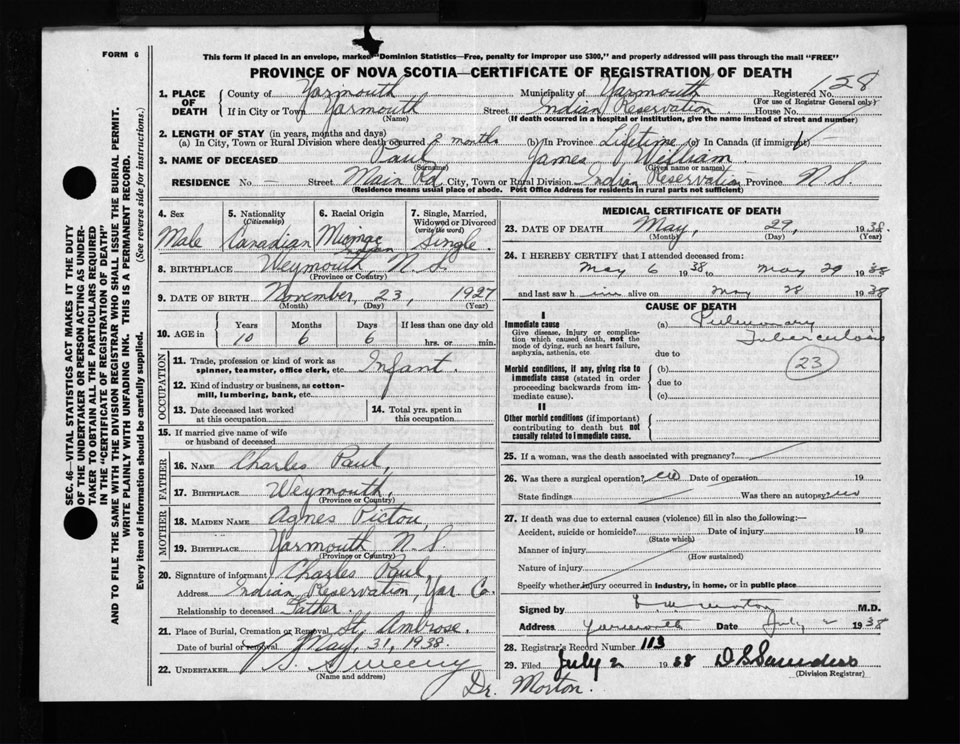 FORM 6
This form if placed in an envelope, marked "Dominion Statistics—Free, penalty for improper use $300," and properly addressed will pass through the mail "FREE"
PROVINCE OF NOVA SCOTIA—CERTIFICATE OF REGISTRATION OF DEATH
1. PLACE OF DEATH County of Yarmouth Municipality of Yarmouth Registered No. 128
(For use of Registrar General only)
If in City or Town Yarmouth Street Indian Reservation House No.
(Name) (If death occurred in a hospital or institution, give the name instead of street and number)
2. LENGTH OF STAY (in years, months and days)
(a) In City, Town or Rural Division where death occurred 2 months (b) In Province Lifetime (c) In Canada (if immigrant)
3. NAME OF DECEASED Paul James William
(Surname) (Given name or names)
RESIDENCE No. — Street Main Rd. City, Town or Rural Division Indian Reservation Province N.S.
(Residence means usual place of abode. Post Office Address for residents in rural parts not sufficient)
SEC. 46—VITAL STATISTICS ACT MAKES IT THE DUTY
OF THE UNDERTAKER OR PERSON ACTING AS UNDER-
TAKER TO OBTAIN ALL THE PARTICULARS REQUIRED
IN THE "CERTIFICATE OF REGISTRATION OF DEATH"
AND TO FILE THE SAME WITH THE DIVISION REGISTRAR WHO SHALL ISSUE THE BURIAL PERMIT.
WRITE PLAINLY WITH UNFADING INK. THIS IS A PERMANENT RECORD.
Every item of information should be carefully supplied. (See reverse side for instructions.)
4. Sex
Male
5. Nationality
(Citizenship)
Canadian
6. Racial Origin
Micmac
Indian
7. Single, Married,
Widowed or Divorced
(write the word)
Single.
8. BIRTHPLACE Weymouth, N.S.
(Province or Country)
9. DATE OF BIRTH November, 23, 1927
(Month) (Day) (Year)
10. AGE in Years Months Days If less than one day old
10 6 6 hrs. or min.
OCCUPATION
11. Trade, profession or kind of work as
spinner, teamster, office clerk, etc. Infant.
12. Kind of industry or business, as cotton-
mill, lumbering, bank, etc.
13. Date deceased last worked
at this occupation
14. Total yrs. spent in
this occupation
15. If married give name of wife
or husband of deceased
FATHER
16. NAME Charles Paul,
17. BIRTHPLACE Weymouth,
(Province or Country)
MOTHER
18. MAIDEN NAME Agnes Pictou,
19. BIRTHPLACE Yarmouth N.S.
(Province or Country)
20. Signature of informant Charles Paul
Address Indian Reservation, Yar. Co.
Relationship to deceased Father.
21. Place of Burial, Cremation or Removal St. Ambrose.
Date of burial or removal May, 31, 1938.
22. UNDERTAKER V. S. Sweeny
(Name and address)
Dr. Morton.
MEDICAL CERTIFICATE OF DEATH
23. DATE OF DEATH May, 29, 1938
(Month) (Day) (Year)
24. I HEREBY CERTIFY that I attended deceased from:
May 6 1938 to May 29 1938
and last saw him alive on May 28 1938
CAUSE OF DEATH
I
Immediate cause
Give disease, injury or complica-
tion which caused death, not the
mode of dying, such as heart failure,
asphyxia, asthenia, etc.
(a) Pulmonary
Tuberculosis
due to
23
Morbid conditions, if any, giving rise to
immediate cause (stated in order
proceeding backwards from im-
mediate cause).
(b)
due to
(c)
II
Other morbid conditions (if important)
contributing to death but not
causally related to immediate cause.
25. If a woman, was the death associated with pregnancy?
26. Was there a surgical operation? no Date of operation 19
State findings Was there an autopsy no
27. If death was due to external causes (violence) fill in also the following:—
Accident, suicide or homicide? Date of injury 19
(State which)
Manner of injury
(How sustained)
Nature of injury
Specify whether injury occurred in industry, in home, or in public place
Signed by Morton M.D.
Address Yarmouth Date July 2 1938
28. Registrar's Record Number 113
29. Filed July 2 1938 D B Saunders
(Division Registrar)